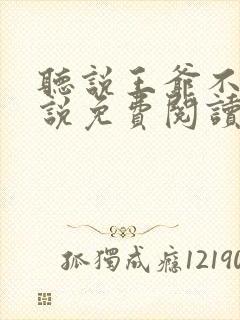 聽說王爺不
說免費閱讀
孤獨成癮12190